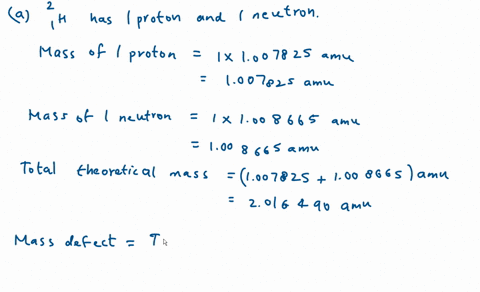 (a) ²₁H has 1 proton and 1 neutron.
Mass of 1 proton = 1 x 1.007825 amu
= 1.007825 amu
Mass of 1 neutron = 1 x 1.008665 amu
= 1.008665 amu
Total theoretical mass = (1.007825 + 1.008665) amu
= 2.016490 amu
Mass defect = T